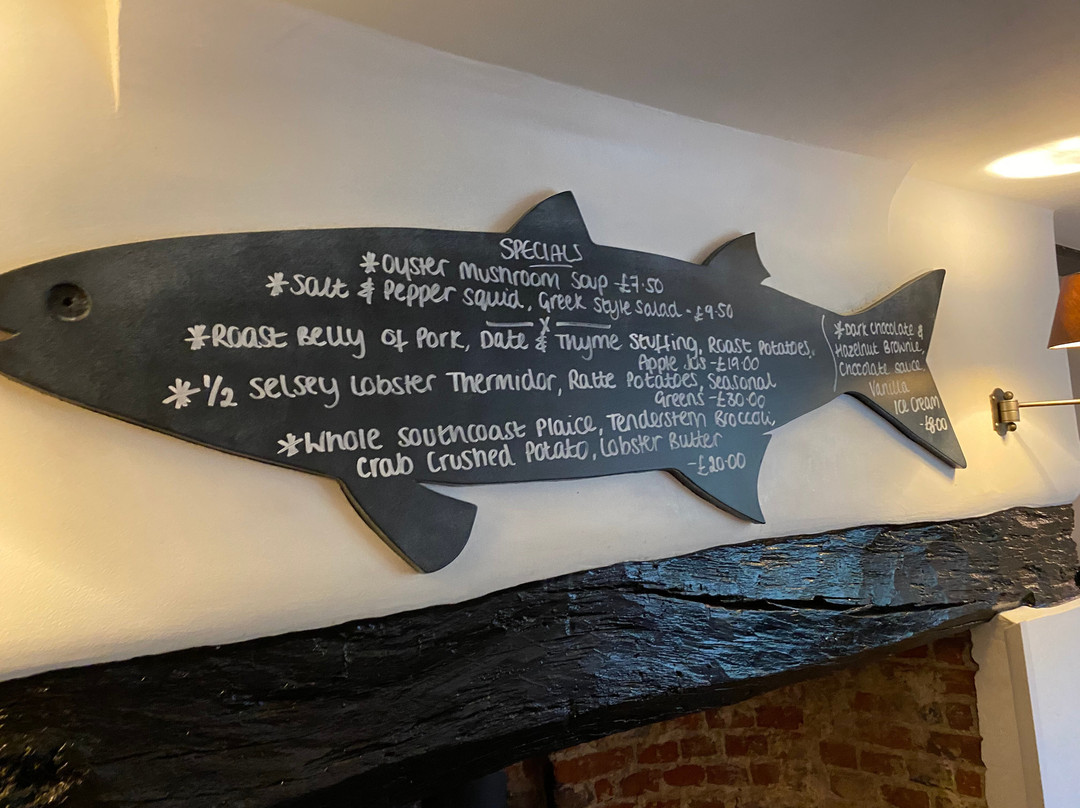 SPECIALS
*Oyster Mushroom Soup -£7.50
*Salt & Pepper Squid, Greek Style Salad - £9.50
*Roast Belly of Pork, Date & Thyme Stuffing, Roast Potatoes,
Apple Jus -£19.00
*½ Selsey Lobster Thermidor, Ratte Potatoes, Seasonal
Greens -£30.00
*Whole Southcoast Plaice, Tenderstem Broccoli,
Crab Crushed Potato, Lobster Butter
-£20.00
*Dark Chocolate &
Hazelnut Brownie,
Chocolate Sauce,
Vanilla
Ice Cream
-£8.00